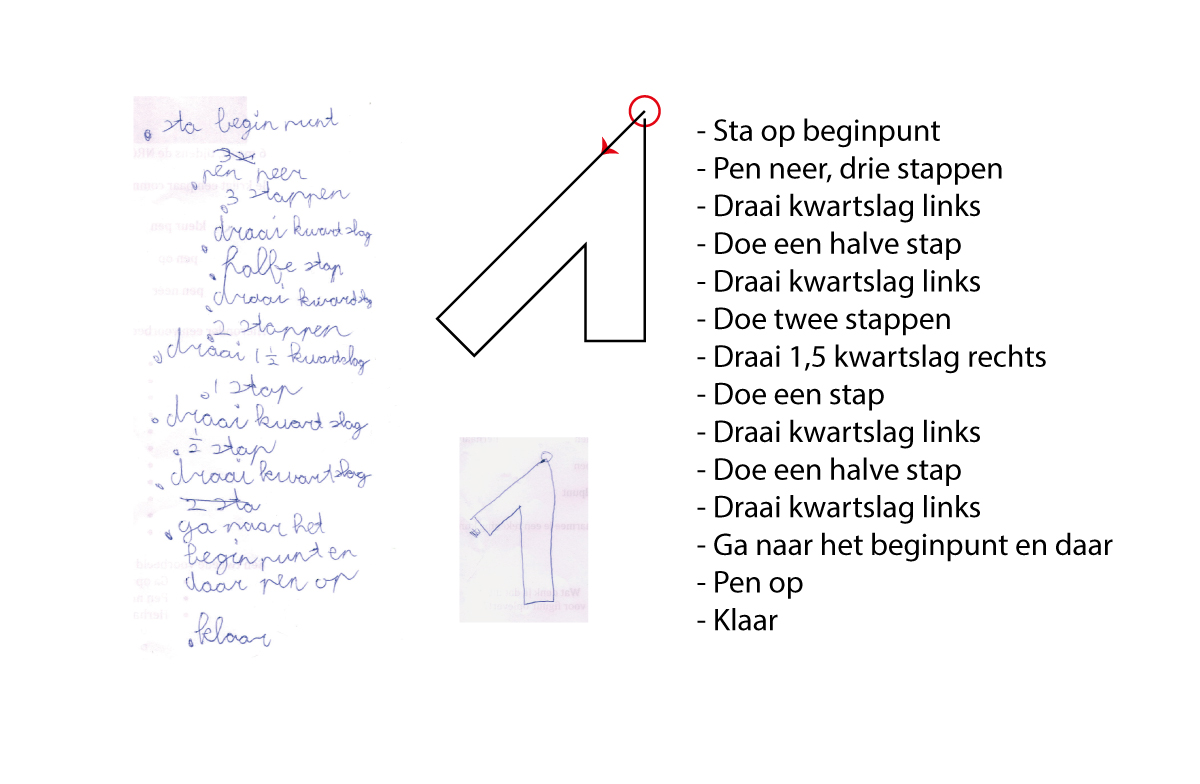 sta beginpunt
pen neer
3 stappen
draai kwartslag
halfe stap
draai kwardslg
2 stappen
draai 1 ½ kwartslag
1 stap
draai kwart slag
½ stap
draai kwartslag
2 sta
ga naar het
beginpunt en
daar pen op
klaar
- Sta op beginpunt
- Pen neer, drie stappen
- Draai kwartslag links
- Doe een halve stap
- Draai kwartslag links
- Doe twee stappen
- Draai 1,5 kwartslag rechts
- Doe een stap
- Draai kwartslag links
- Doe een halve stap
- Draai kwartslag links
- Ga naar het beginpunt en daar
- Pen op
- Klaar